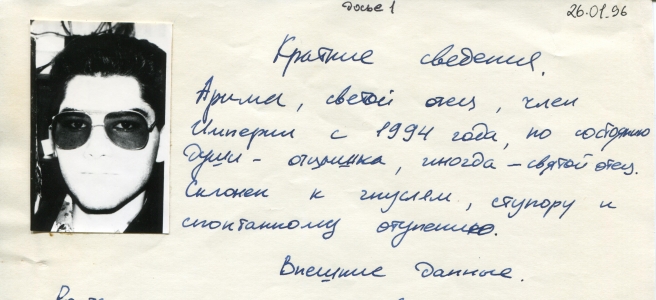 Досье 1
26.01.96
Краткие сведения.
Арима, святой отец, член
Империи с 1994 года, по состоянию
души – отшышка, иногда – святой отец.
Склонен к гнусям, ступору и
спонтанному отупению.
Внешние данные.